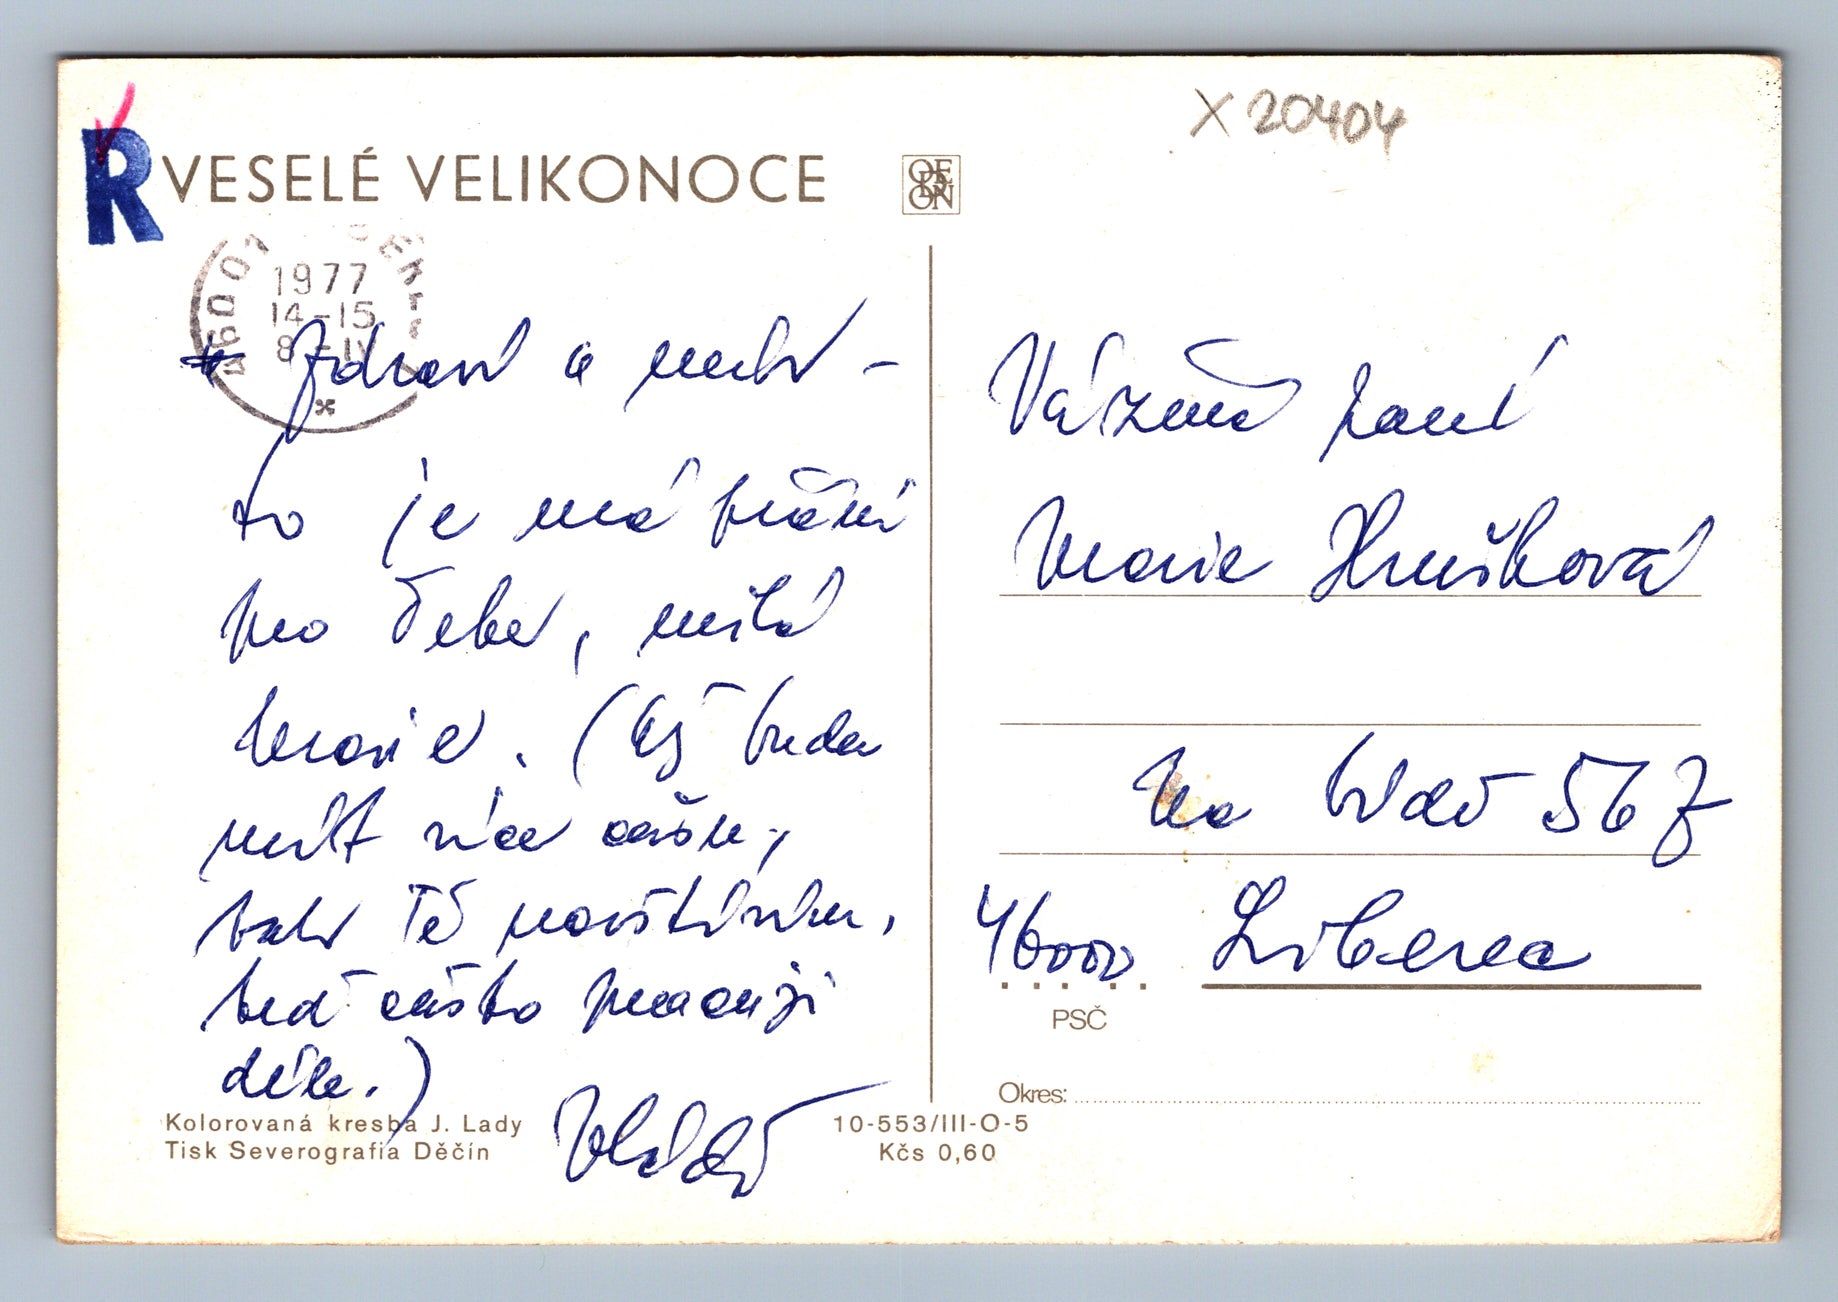 X 20404
R VESELÉ VELIKONOCE
ODEON
460 01
1977
14-15
8.-IV
Zdraví a
to je mé přání
pro Tebe, milá
Marie. (Až budu
mít více času,
tak Tě navštívím,
teď často pracuji
déle.)
Vážená paní
Marie Hrušková
Na bídě 56 Z
46000 Liberec
PSČ
Okres:
Kolorovaná kresba J. Lady
Tisk Severografia Děčín
10-553/III-O-5
Kčs 0,60